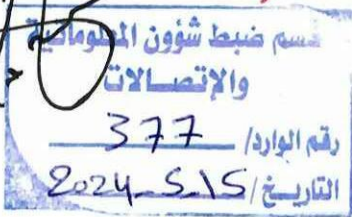 قسم ضبط شؤون المعلوماتية
والإتصالات
رقم الوارد/ 377
التاريخ/ 2024_5_15